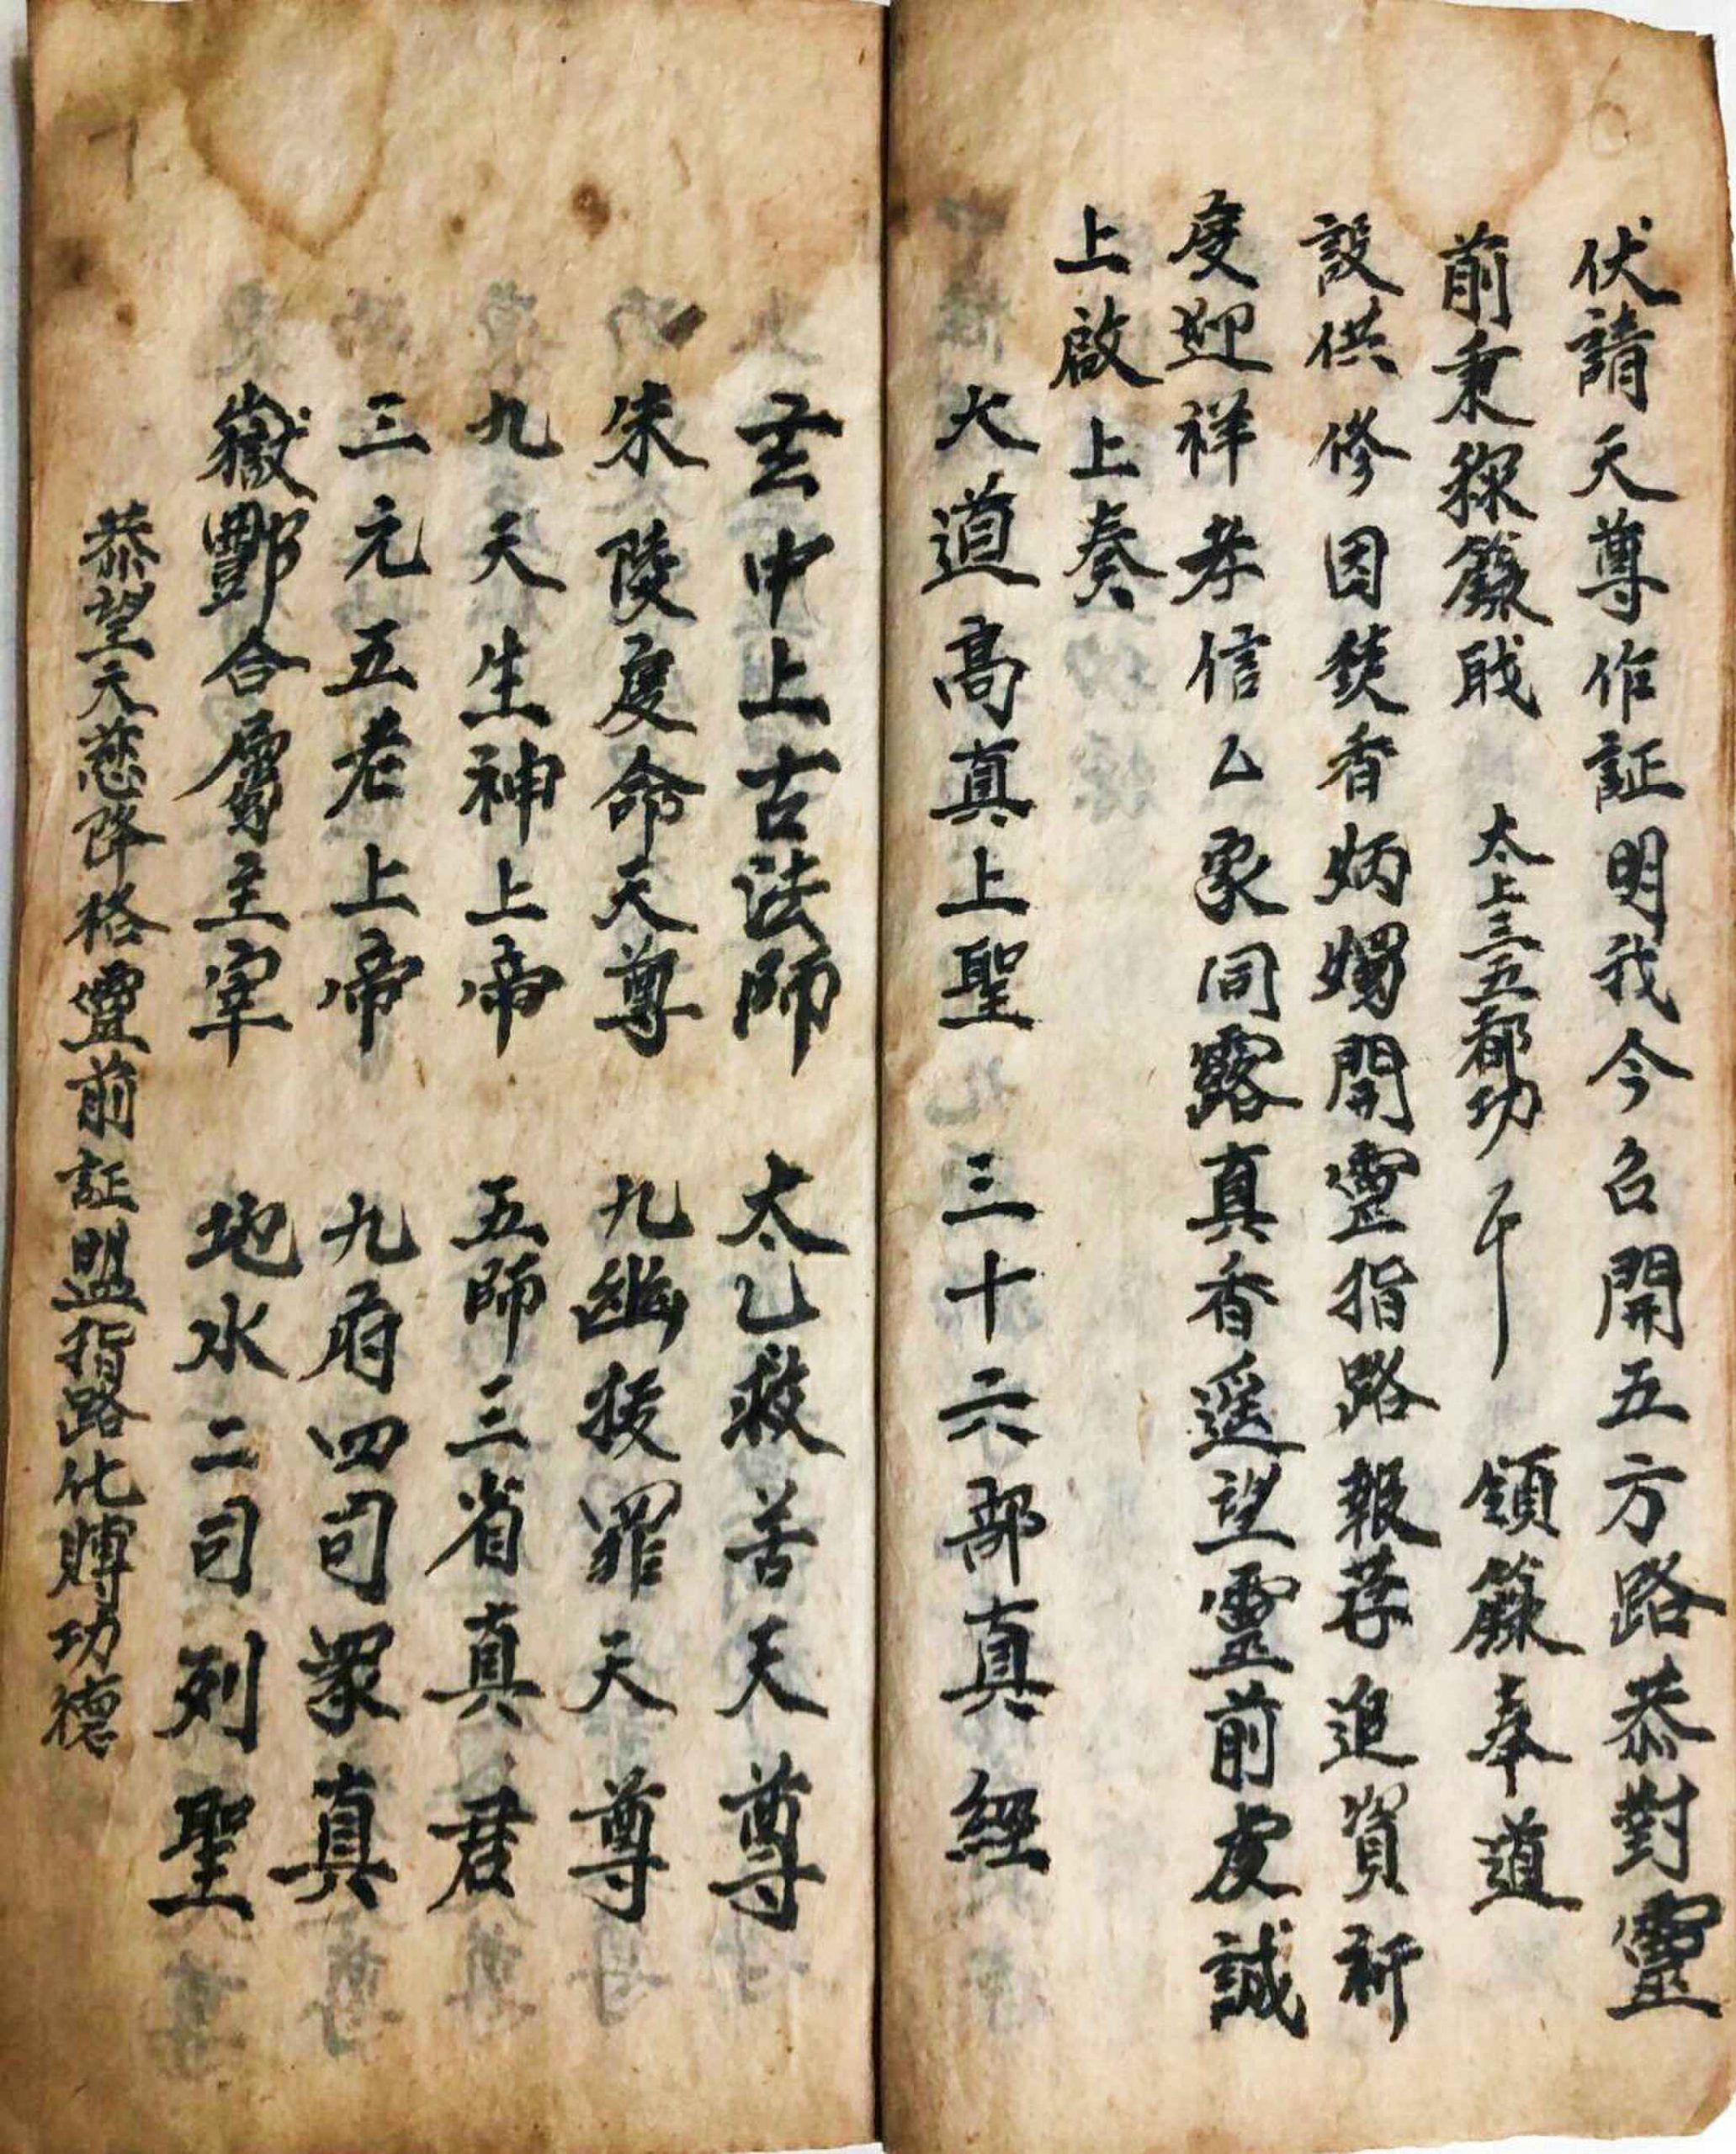 伏請天尊作証明我今召開五方路恭對靈
前秉籙職 太上三五都功 領籙奉道
設供修因焚香炳燭開靈指路報荐追資祈
度迎祥孝信乙家同露真香遥望靈前虔誠
上啟上奏
大道高真上聖 三十六部真經
玄中上古法師 太乙救苦天尊
朱陵度命天尊 九幽拔罪天尊
九天生神上帝 五師三省真君
三元五老上帝 九府四司眾真
嶽酆合屬主宰 地水二司列聖
恭望天慈降格靈前証盟指路化賻功德